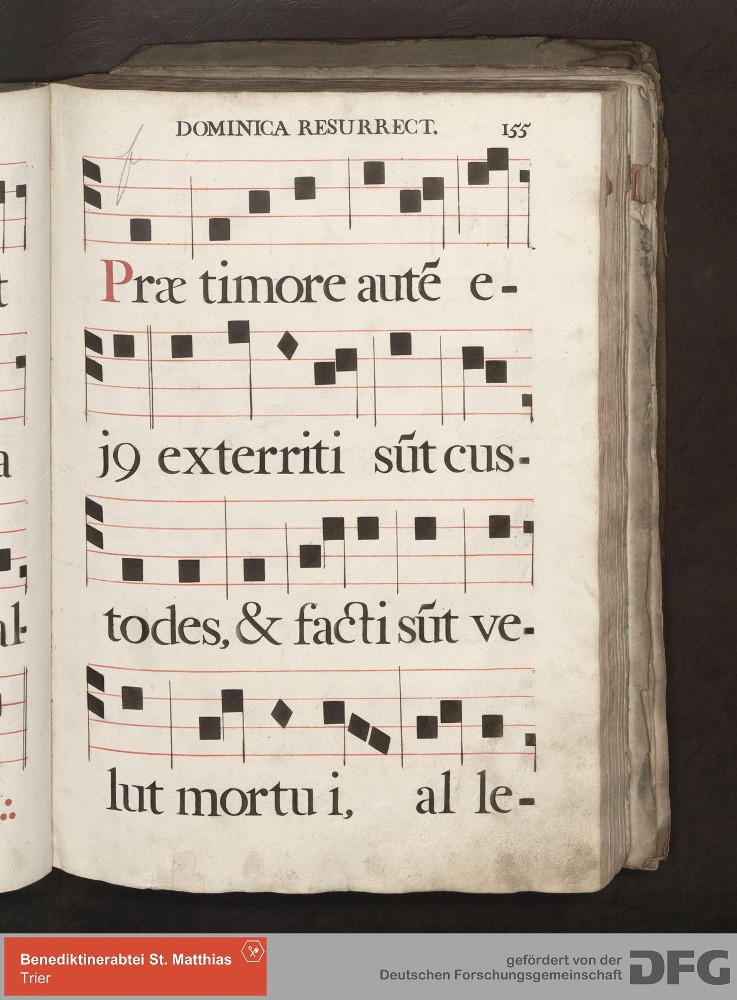 DOMINICA RESURRECT. 155
Præ timore autē e-
j9 exterriti sūt cus-
todes, & facti sūt ve-
lut mortu i, al le-
Benediktinerabtei St. Matthias
Trier
gefördert von der
Deutschen Forschungsgemeinschaft DFG